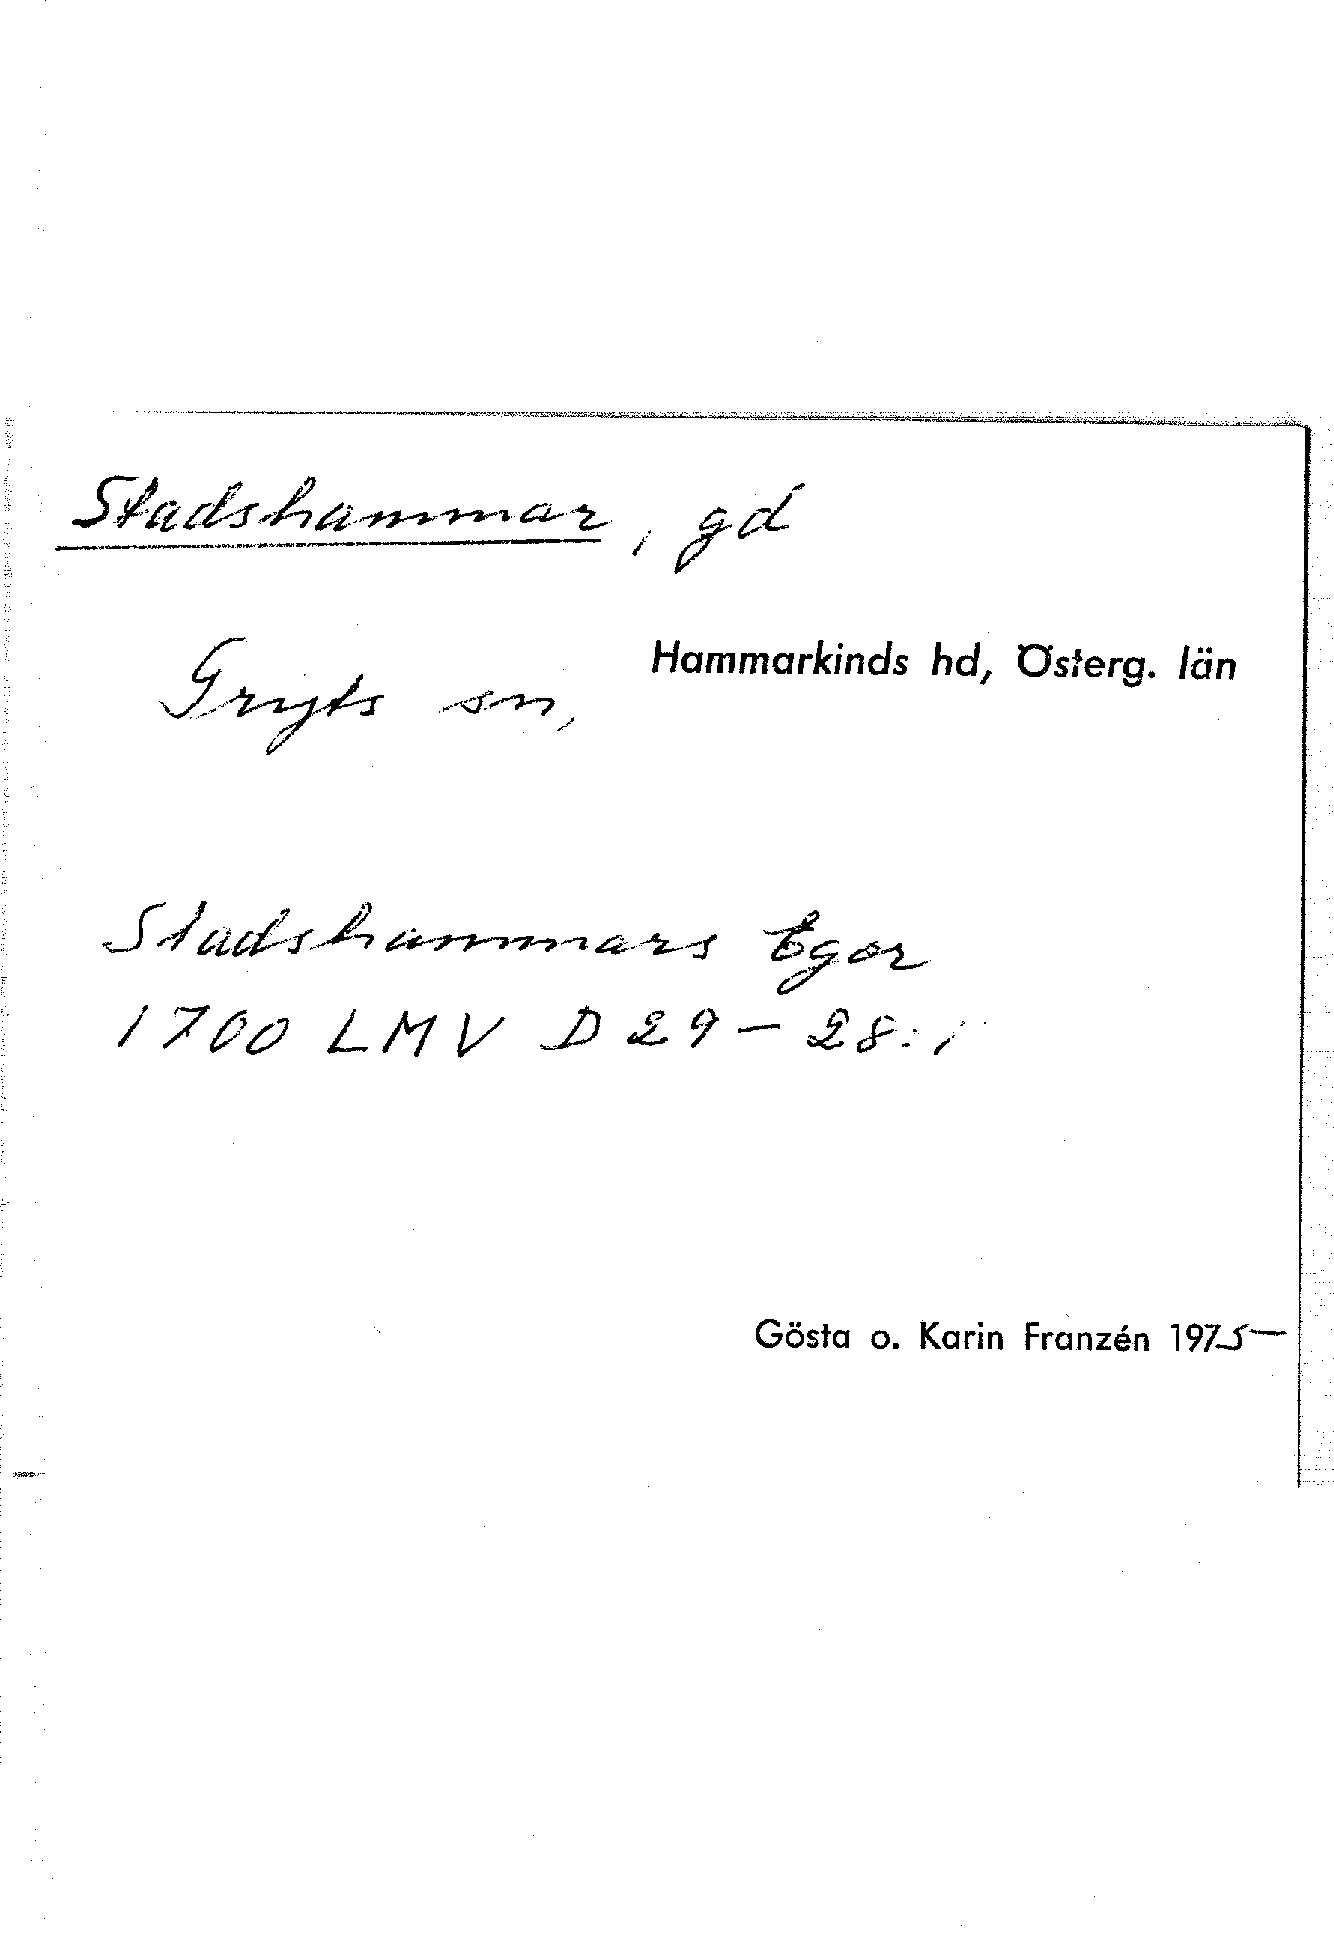 Stadshammar, gd
Gryts sn, Hammarkinds hd, Österg. län
Stadshammars Egor
1700 LMV D 29 – 28:1
Gösta o. Karin Franzén 1975